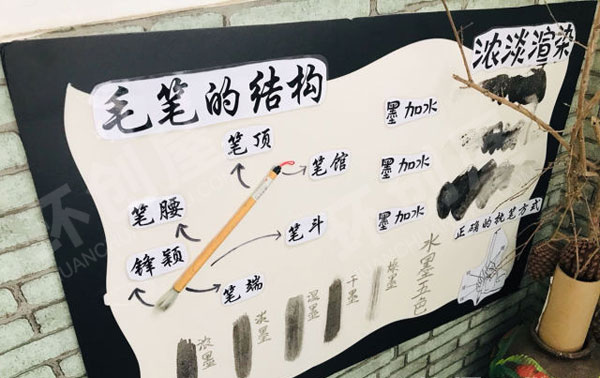 毛笔的结构
浓淡渲染
笔顶
笔馆
墨加水
墨加水
墨加水
笔腰
笔斗
锋颖
笔端
正确的执笔方式
水墨五色
浓墨
淡墨
湿墨
干墨
燥墨